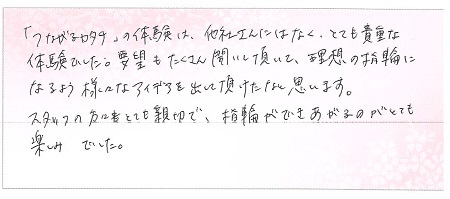 「つながるカタチ」の体験は、他社さんにはなく、とても貴重な
体験でした。要望もたくさん聞いて頂いて、理想の指輪に
なるよう様々なアイデアを出して頂けたなと思います。
スタッフの方々もとても親切で、指輪ができあがるのがとても
楽しみでした。